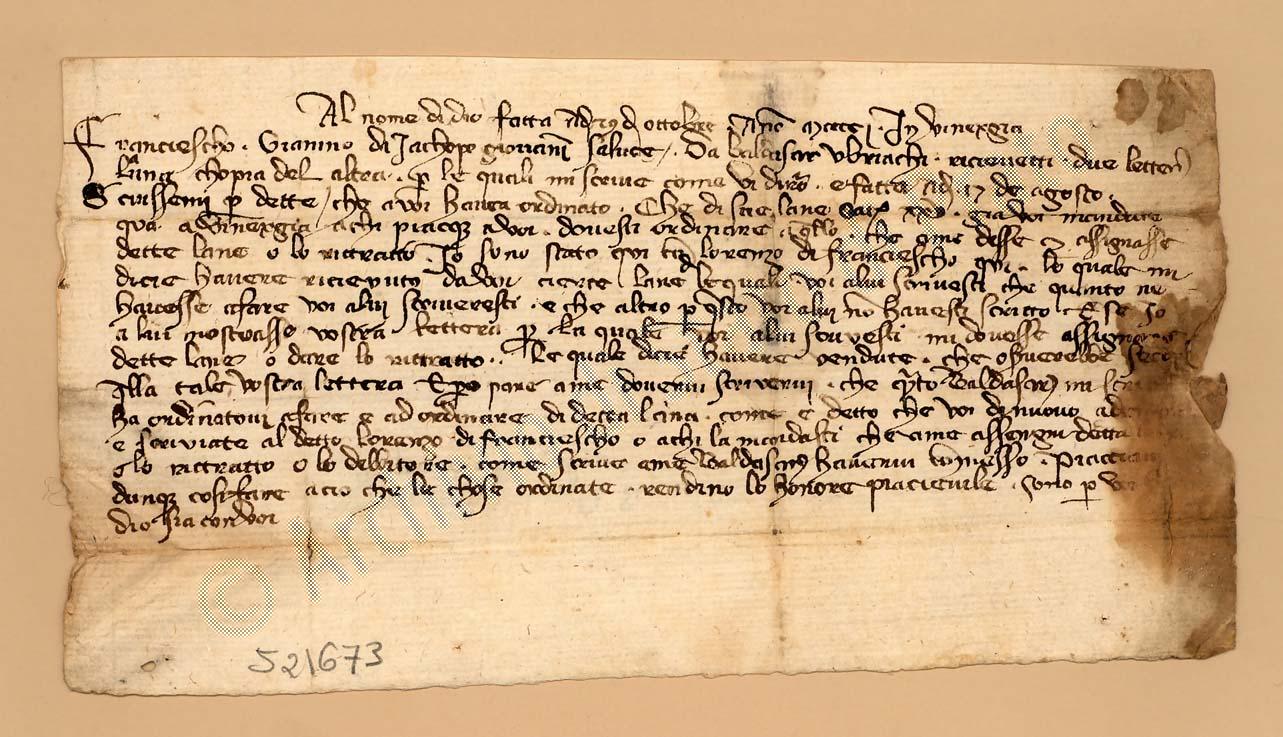 Al nome di dio fatta adi 19 di ottobre Anno In vinexgia
Francieschо. Gianino di Jachopo giovanni salute. Da baldasar vbriachi. ricievetti. due lettere
l'una chopia del altra. p le quali mi scrive come vi dirò. e fatta adi 17 de agosto.
Scrissemi p dette che a voi havea ordinato. Che di sue lane già voi mandate
qua a vinexgia achi piacque a voi. dovesti ordinare a quello che ame desse assignasse
dette lane o lo rittratto. Io sono stato qui con lorenzo di francieschо qui. lo quale mi
dicie havere ricievuto da voi cierte lane le quale. voi alui scrivesti che quanto ne
havesse afare voi alui scriveresti. e che altro p questo voi alui non havesti scritto. E se io
a lui mostrasse vostra lettera p la quale voi alui scrivesti mi dovesse assignare
dette lane o dare lo rittratto. le quale dicie havere vendute. che oserverebbe
quella tale vostra lettera E però pare ame dovervi scrivervi. che quanto Baldasar mi
ha ordinatovi afare e ad ordinare di detta lana. come e detto che voi di nuovo
e scriviate al detto lorenzo di francieschо o achi la mandasti che ame assengni detta
lo rittratto o lo debbitore. come scrive ame Baldasar havervi comesso. Piaccia
dunque cosi fare acio che le chose ordinate. rendino lo honore piacievile. sono p voi
dio sia con voi
521673
© Archi